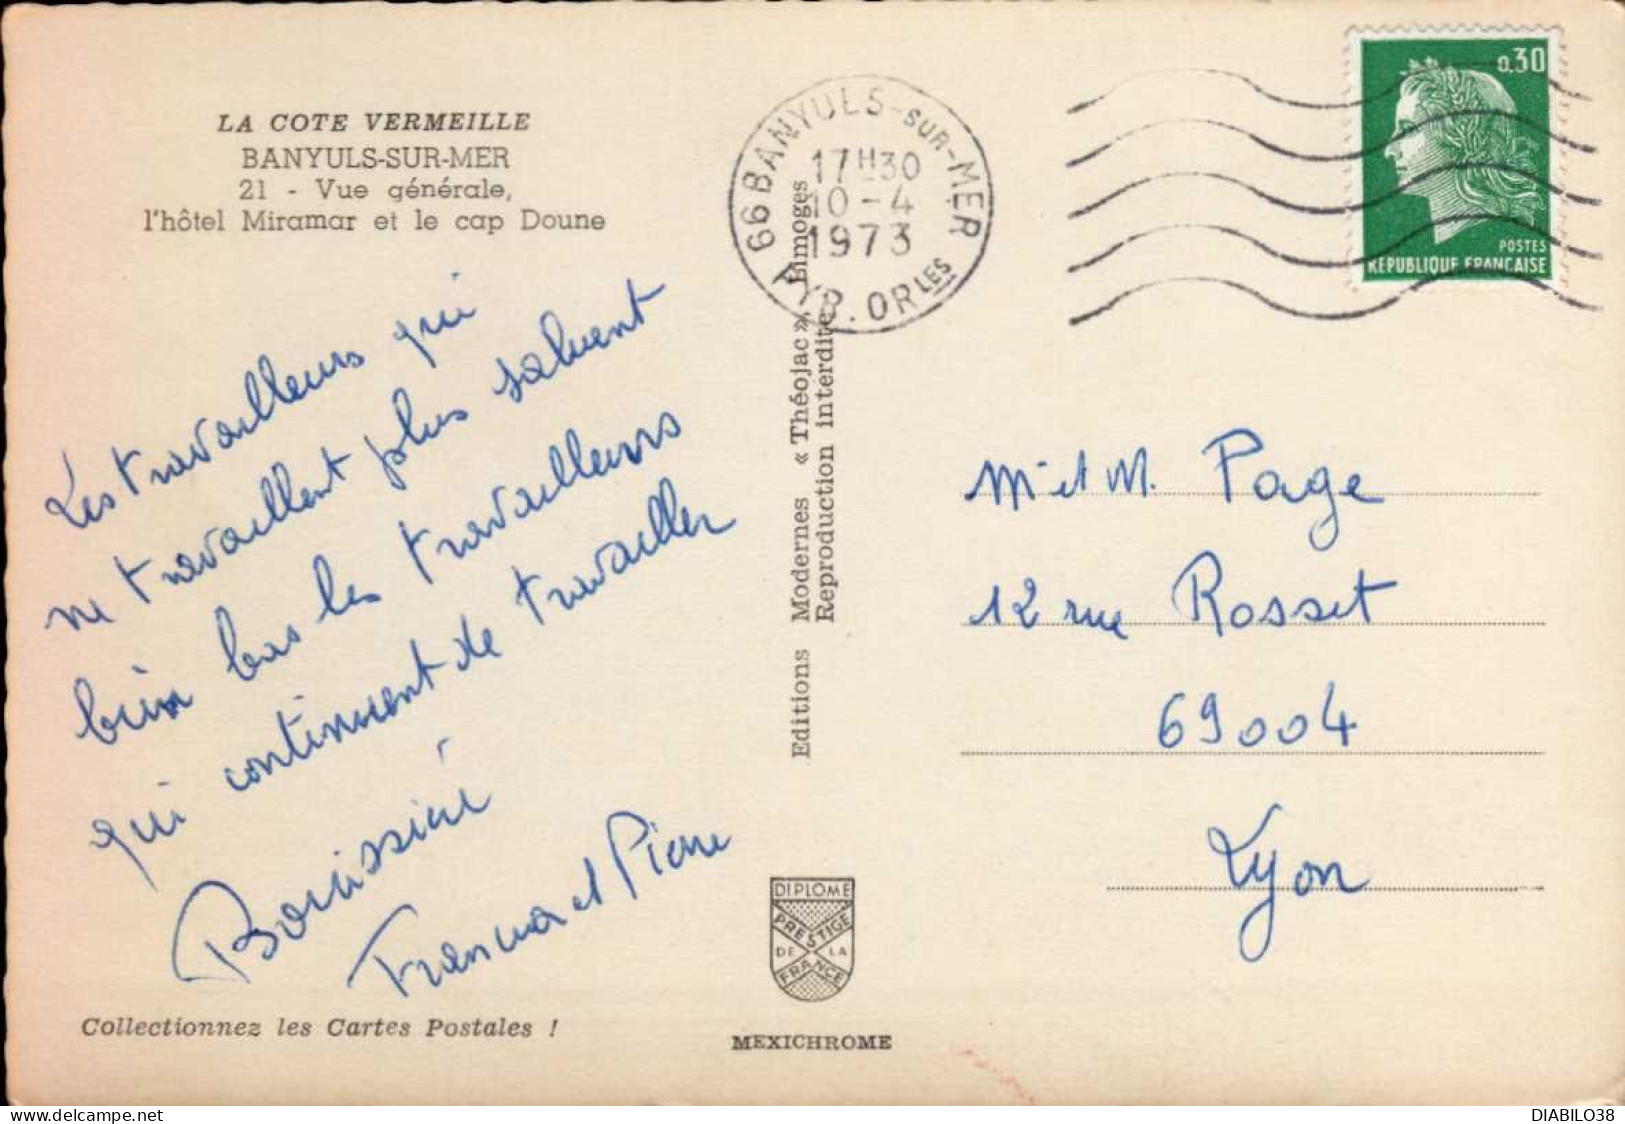 LA COTE VERMEILLE
BANYULS-SUR-MER
21 - Vue générale,
l'hôtel Miramar et le cap Doune
Les travailleurs qui
ne travaillent plus saluent
bien bas les travailleurs
qui continuent de travailler
et Pierre
Collectionnez les Cartes Postales !
Editions Modernes « Théojac », Limoges
Reproduction interdite
DIPLOME
PRESTIGE
DE LA
FRANCE
MEXICHROME
66 BANYULS-SUR-MER
17H30
10-4
1973
PYR. ORLES
0,30
POSTES
REPUBLIQUE FRANÇAISE
M. Page
12 rue Rosset
69004
Lyon
DIABILO38